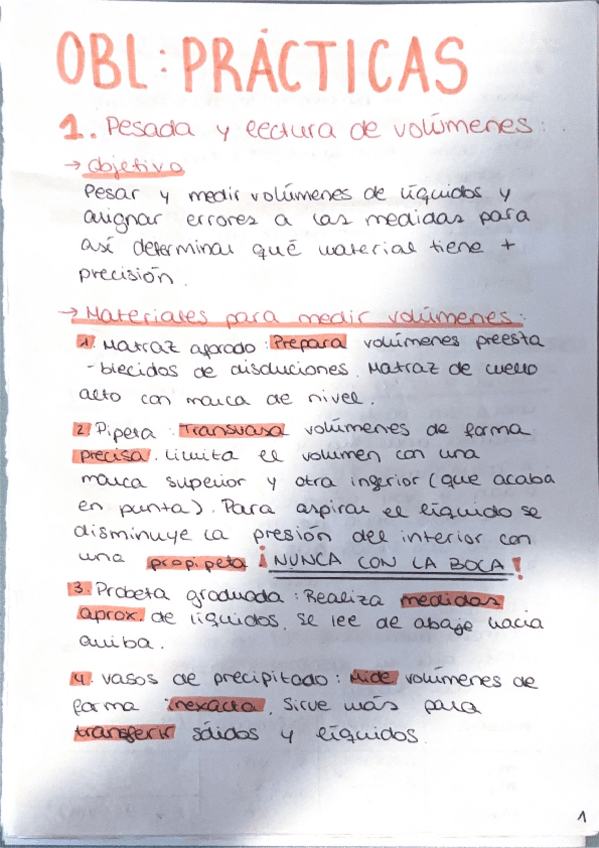 OBL: PRÁCTICAS
1. Pesada y lectura de volúmenes:
→ Objetivo
Pesar y medir volúmenes de líquidos y
asignar errores a las medidas para
así determinar qué material tiene +
precisión.
→ Materiales para medir volúmenes:
1. Matraz aforado: Prepara volúmenes preesta
-blecidos de disoluciones. Matraz de cuello
alto con marca de nivel.
2. Pipeta: Transvasa volúmenes de forma
precisa. Limita el volumen con una
marca superior y otra inferior (que acaba
en punta). Para aspirar el líquido se
disminuye la presión del interior con
una propipeta ¡NUNCA CON LA BOCA!
3. Probeta graduada: Realiza medidas
aprox. de líquidos, se lee de abajo hacia
arriba.
4. vasos de precipitado: Mide volúmenes de
forma inexacta. Sirve más para
transferir sólidos y líquidos.
1